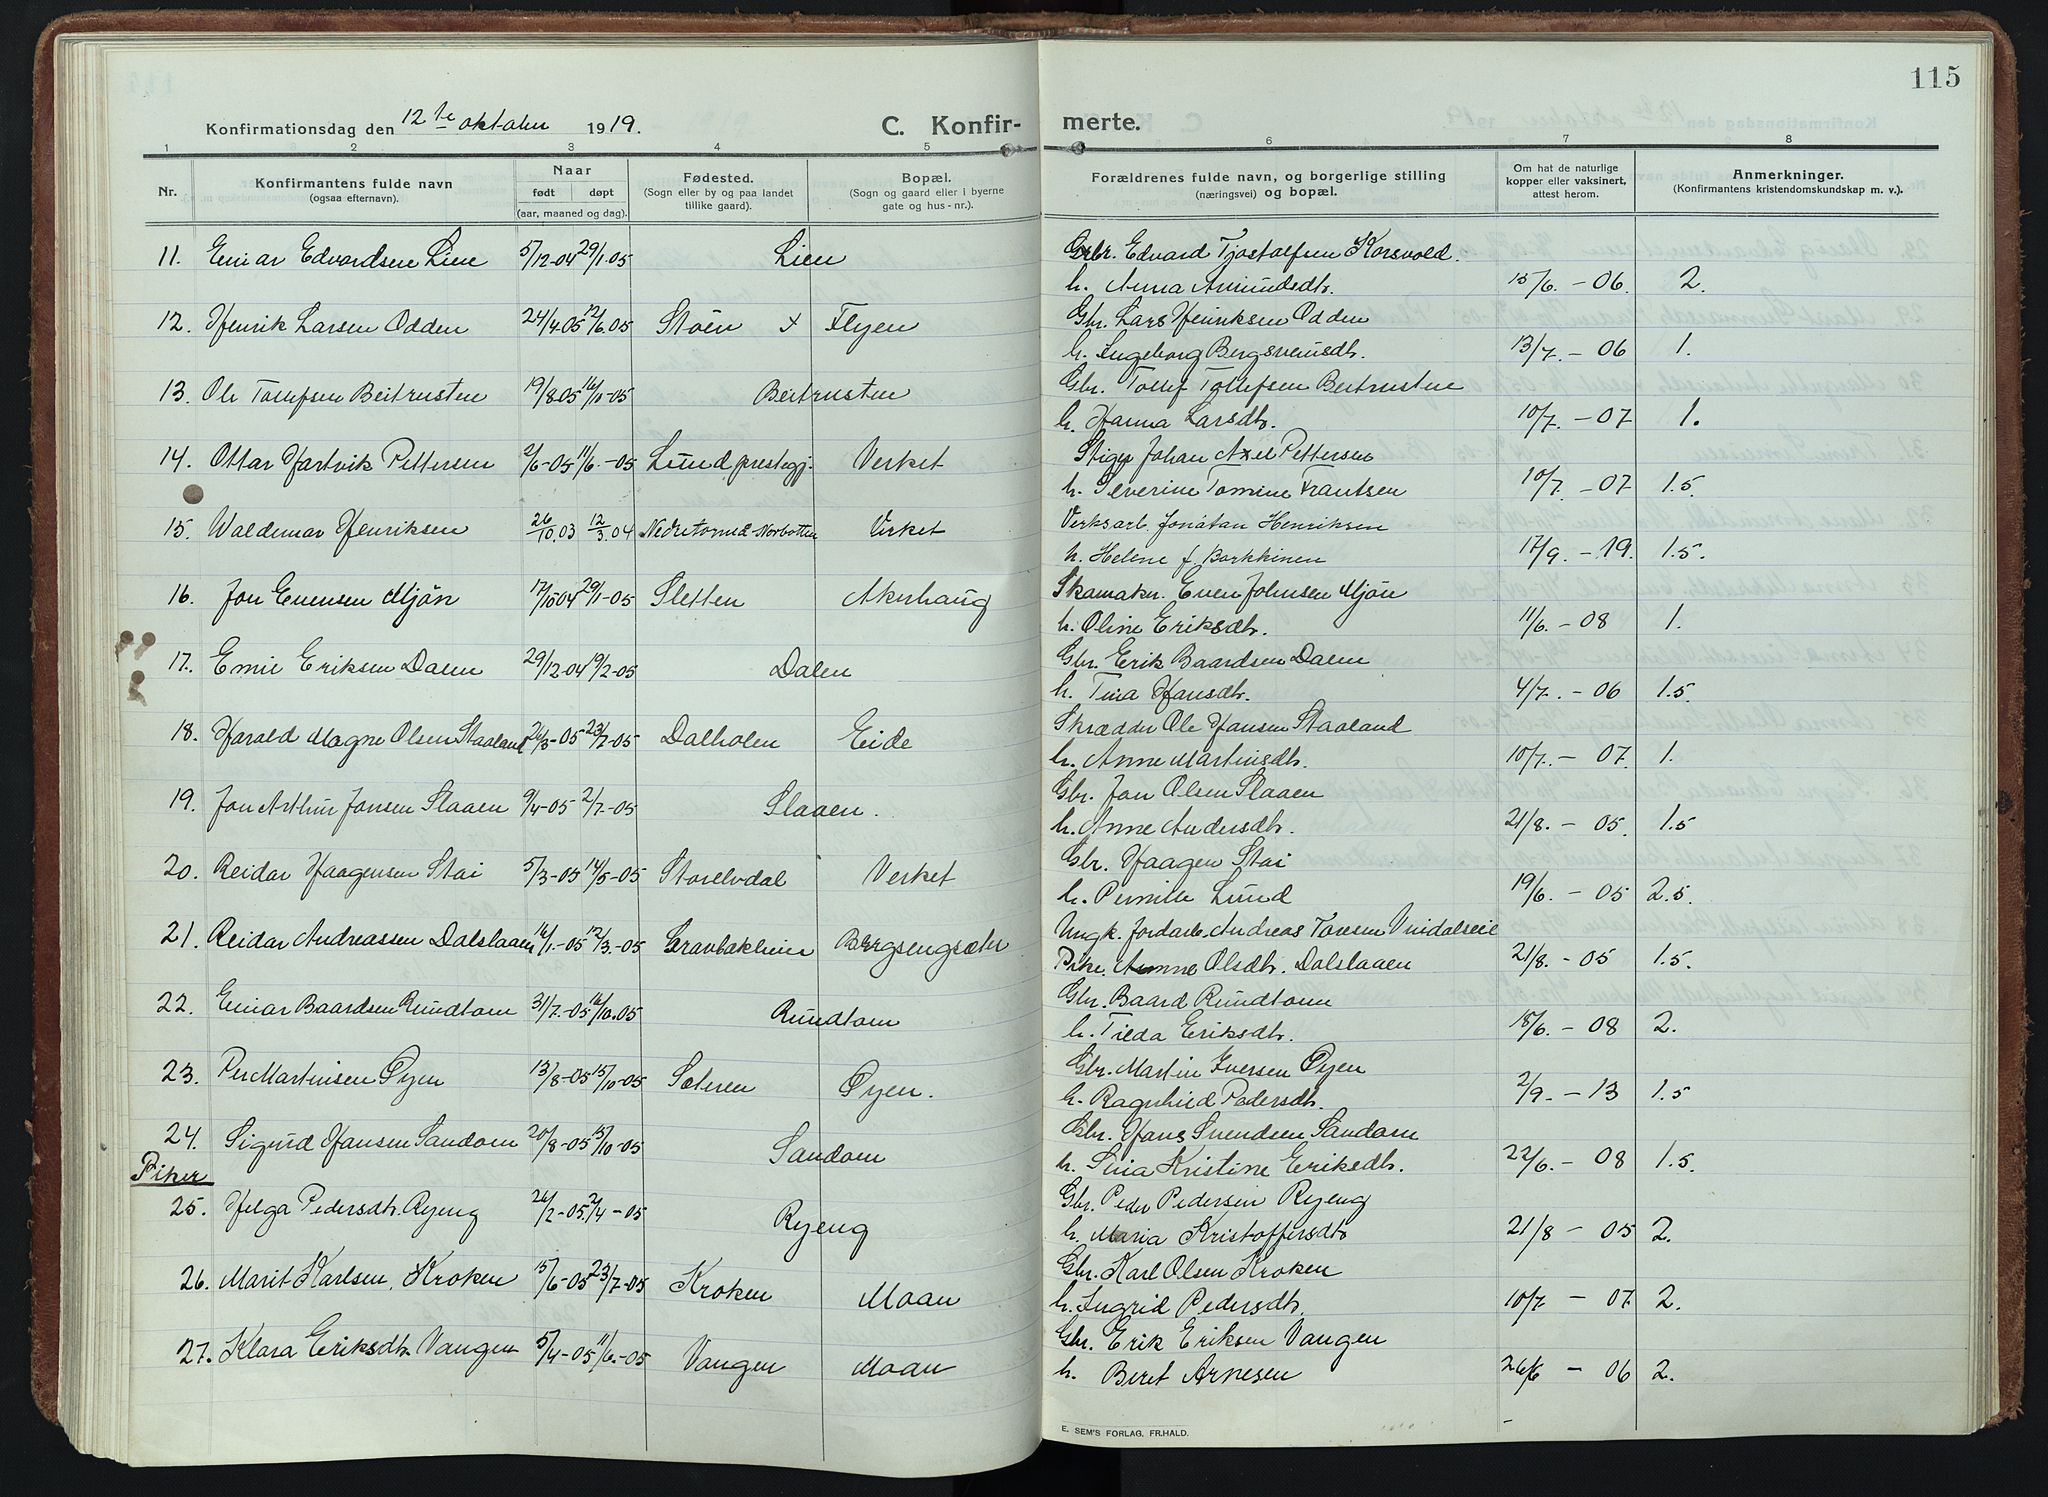 115
Konfirmationsdag den 12te oktober 1919.
C. Konfirmerte.
1 2 3 4 5 6 7 8
Nr. Konfirmantens fulde navn (ogsaa efternavn). Naar født døpt (aar, maaned og dag). Fødested. (Sogn eller by og paa landet tillike gaard). Bopæl. (Sogn og gaard eller i byerne gate og hus-nr.). Forældrenes fulde navn, og borgerlige stilling (næringsvei) og bopæl. Om hat de naturlige kopper eller vaksinert, attest herom. Anmerkninger. (Konfirmantens kristendomskundskap m. v.).
11. Einar Edvardsen Lien 5/12-04 29/1-05 Lien Gbr. Edvard Tjostolfsen Korsvold.
h. Anna Amundsdtr. 15/6. - 06. 2.
12. Henrik Larsen Odden 24/4.05 12/6.05 Støen x Flyen Gbr. Lars Henriksen Odden
h. Ingeborg Bergsveinsdtr. 13/7. - 06 1.
13. Ole Tollefsen Beitrusten 19/8-05 16/11-05 Beitrusten Gbr. Tollef Tollefsen Beitrusten
h. Hanna Larsdtr. 10/7. - 07 1.
14. Ottar Hartvik Pettersen 2/6-05 11/6.-05 Lund prestegj. Verket Stiger Johan Axel Pettersen
h. Severine Tomine Frantsen 10/7. - 07 1.5.
15. Waldemar Henriksen 26/10.03 12/3.04 Nedretorneå-Norbotten Verket Verksarb. Jonatan Henriksen
h. Helene f. Borkkinen 17/9. - 19. 1.5.
16. Jon Evensen Mjön 17/10 04 29/1-05 Sletten Akerhaug Skomaker. Even Johnsen Mjön
h. Oline Eriksdtr. 11/6. - 08 1.
17. Emil Eriksen Dalen 29/12-04 19/2-05 Dalen Gbr. Erik Baardsen Dalen
h. Tina Hansdtr. 4/7. - 06 1.5
18. Harald Magne Olsen Staaland 26/3-05 23/7-05 Dalholen Eide Skrædder Ole Hansen Staaland
h. Anne Martinsdtr. 10/7. - 07. 1.
19. Jon Arthur Jonsen Slaaen 9/4-05 2/7-05 Slaaen. Gbr. Jon Olsen Slaaen
h. Anne Andersdtr. 21/8. - 05. 1.5
20. Reidar Haagensen Stai 5/3-05 14/5-05 Storelvdal Verket Gbr. Haagen Stai
h. Pernille Lund 19/6. - 05 2.5.
21. Reidar Andreassen Dalslaaen 16/1.-05 12/3.-05 Gravbakheim Bergsengsæter Ungk. Jordarb. Andreas Toresen
Pike. Anne Olsdtr. Dalslaaen 21/8. - 05 1.5.
22. Einar Baardsen Rundtom 31/7.-05 16/10.05 Rundtom Gbr. Baard Rundtom
h. Tilda Eriksdtr. 18/6. - 08 2.
23. Per Martinsen Øyen 13/8-05 15/10-05 Sæteren Øyen. Gbr. Martin Iversen Øyen
h. Ragnhild Pedersdtr. 2/9. - 13 1.5
24. Sigurd Hansen Sandom 20/8-05 15/10-05 Sandom Gbr. Hans Svendsen Sandom
h. Sina Kristine Eriksdtr. 22/6. - 08 1.5.
Piker
25. Helga Pedersdtr. Ryeng 26/2-05. 2/4-05 Ryeng Gbr. Peder Pedersen Ryeng
h. Maria Kristoffersdtr 21/8 - 05 2.
26. Marit Karlsen, Kroken 15/6-05 23/7-05 Kroken Moan Gbr. Karl Olsen Kroken
h. Ingrid Pedersdtr. 10/7 - 07 2.
27. Klara Eriksdtr. Vangen 5/4-05 11/6.-05 Vangen Moan Gbr. Erik Eriksen Vangen
h. Beret Arnesen 26/6 - 06 2.
E. SEM'S FORLAG, FR.HALD.